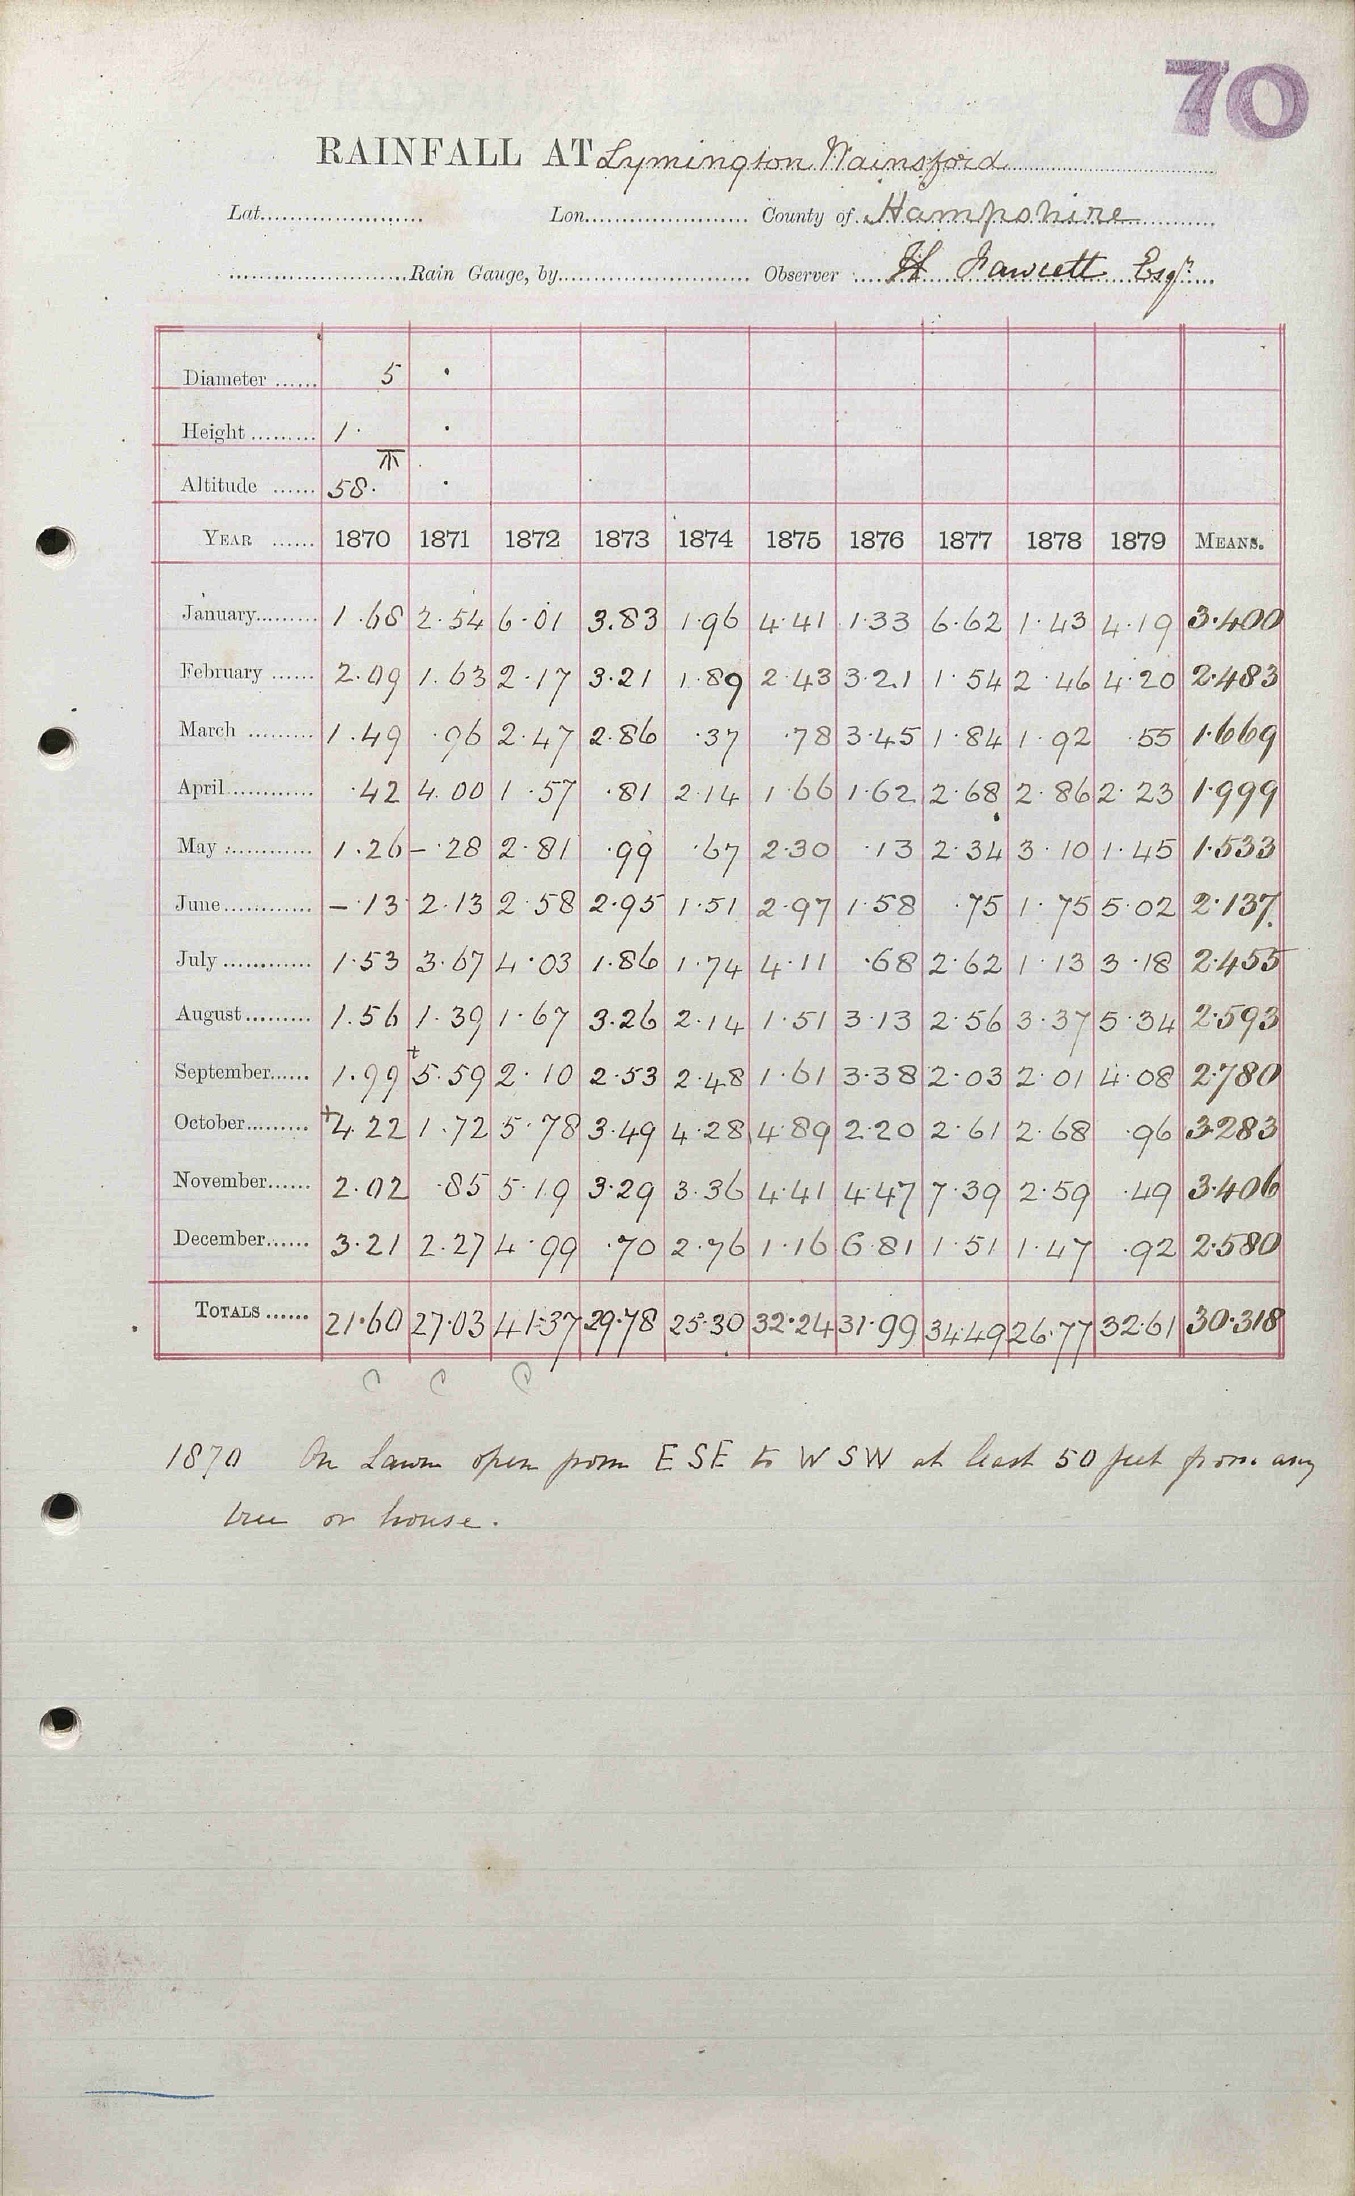 70
RAINFALL AT Lymington Wainsford
Lat. Lon. County of Hampshire
Rain Gauge, by Observer H Fawcett Esqr.
Diameter 5 ·
Height 1· ·
Altitude 58· ·
YEAR 1870 1871 1872 1873 1874 1875 1876 1877 1878 1879 MEANS.
January 1.68 2.54 6.01 3.83 1.96 4.41 1.33 6.62 1.43 4.19 3.400
February 2.09 1.63 2.17 3.21 1.89 2.43 3.21 1.54 2.46 4.20 2.483
March 1.49 .96 2.47 2.86 .37 .78 3.45 1.84 1.92 .55 1.669
April .42 4.00 1.57 .81 2.14 1.66 1.62 2.68 2.86 2.23 1.999
May 1.26 -.28 2.81 .99 .67 2.30 .13 2.34 3.10 1.45 1.533
June -.13 2.13 2.58 2.95 1.51 2.97 1.58 .75 1.75 5.02 2.137
July 1.53 3.67 4.03 1.86 1.74 4.11 .68 2.62 1.13 3.18 2.455
August 1.56 1.39 1.67 3.26 2.14 1.51 3.13 2.56 3.37 5.34 2.593
September 1.99 +5.59 2.10 2.53 2.48 1.61 3.38 2.03 2.01 4.08 2.780
October +4.22 1.72 5.78 3.49 4.28 4.89 2.20 2.61 2.68 .96 3.283
November 2.02 .85 5.19 3.29 3.36 4.41 4.47 7.39 2.59 .49 3.406
December 3.21 2.27 4.99 .70 2.76 1.16 6.81 1.51 1.47 .92 2.580
TOTALS 21.60 27.03 41.37 29.78 25.30 32.24 31.99 34.49 26.77 32.61 30.318
C C
1870 On Lawn open from E SE to W SW at least 50 feet from any
tree or house.